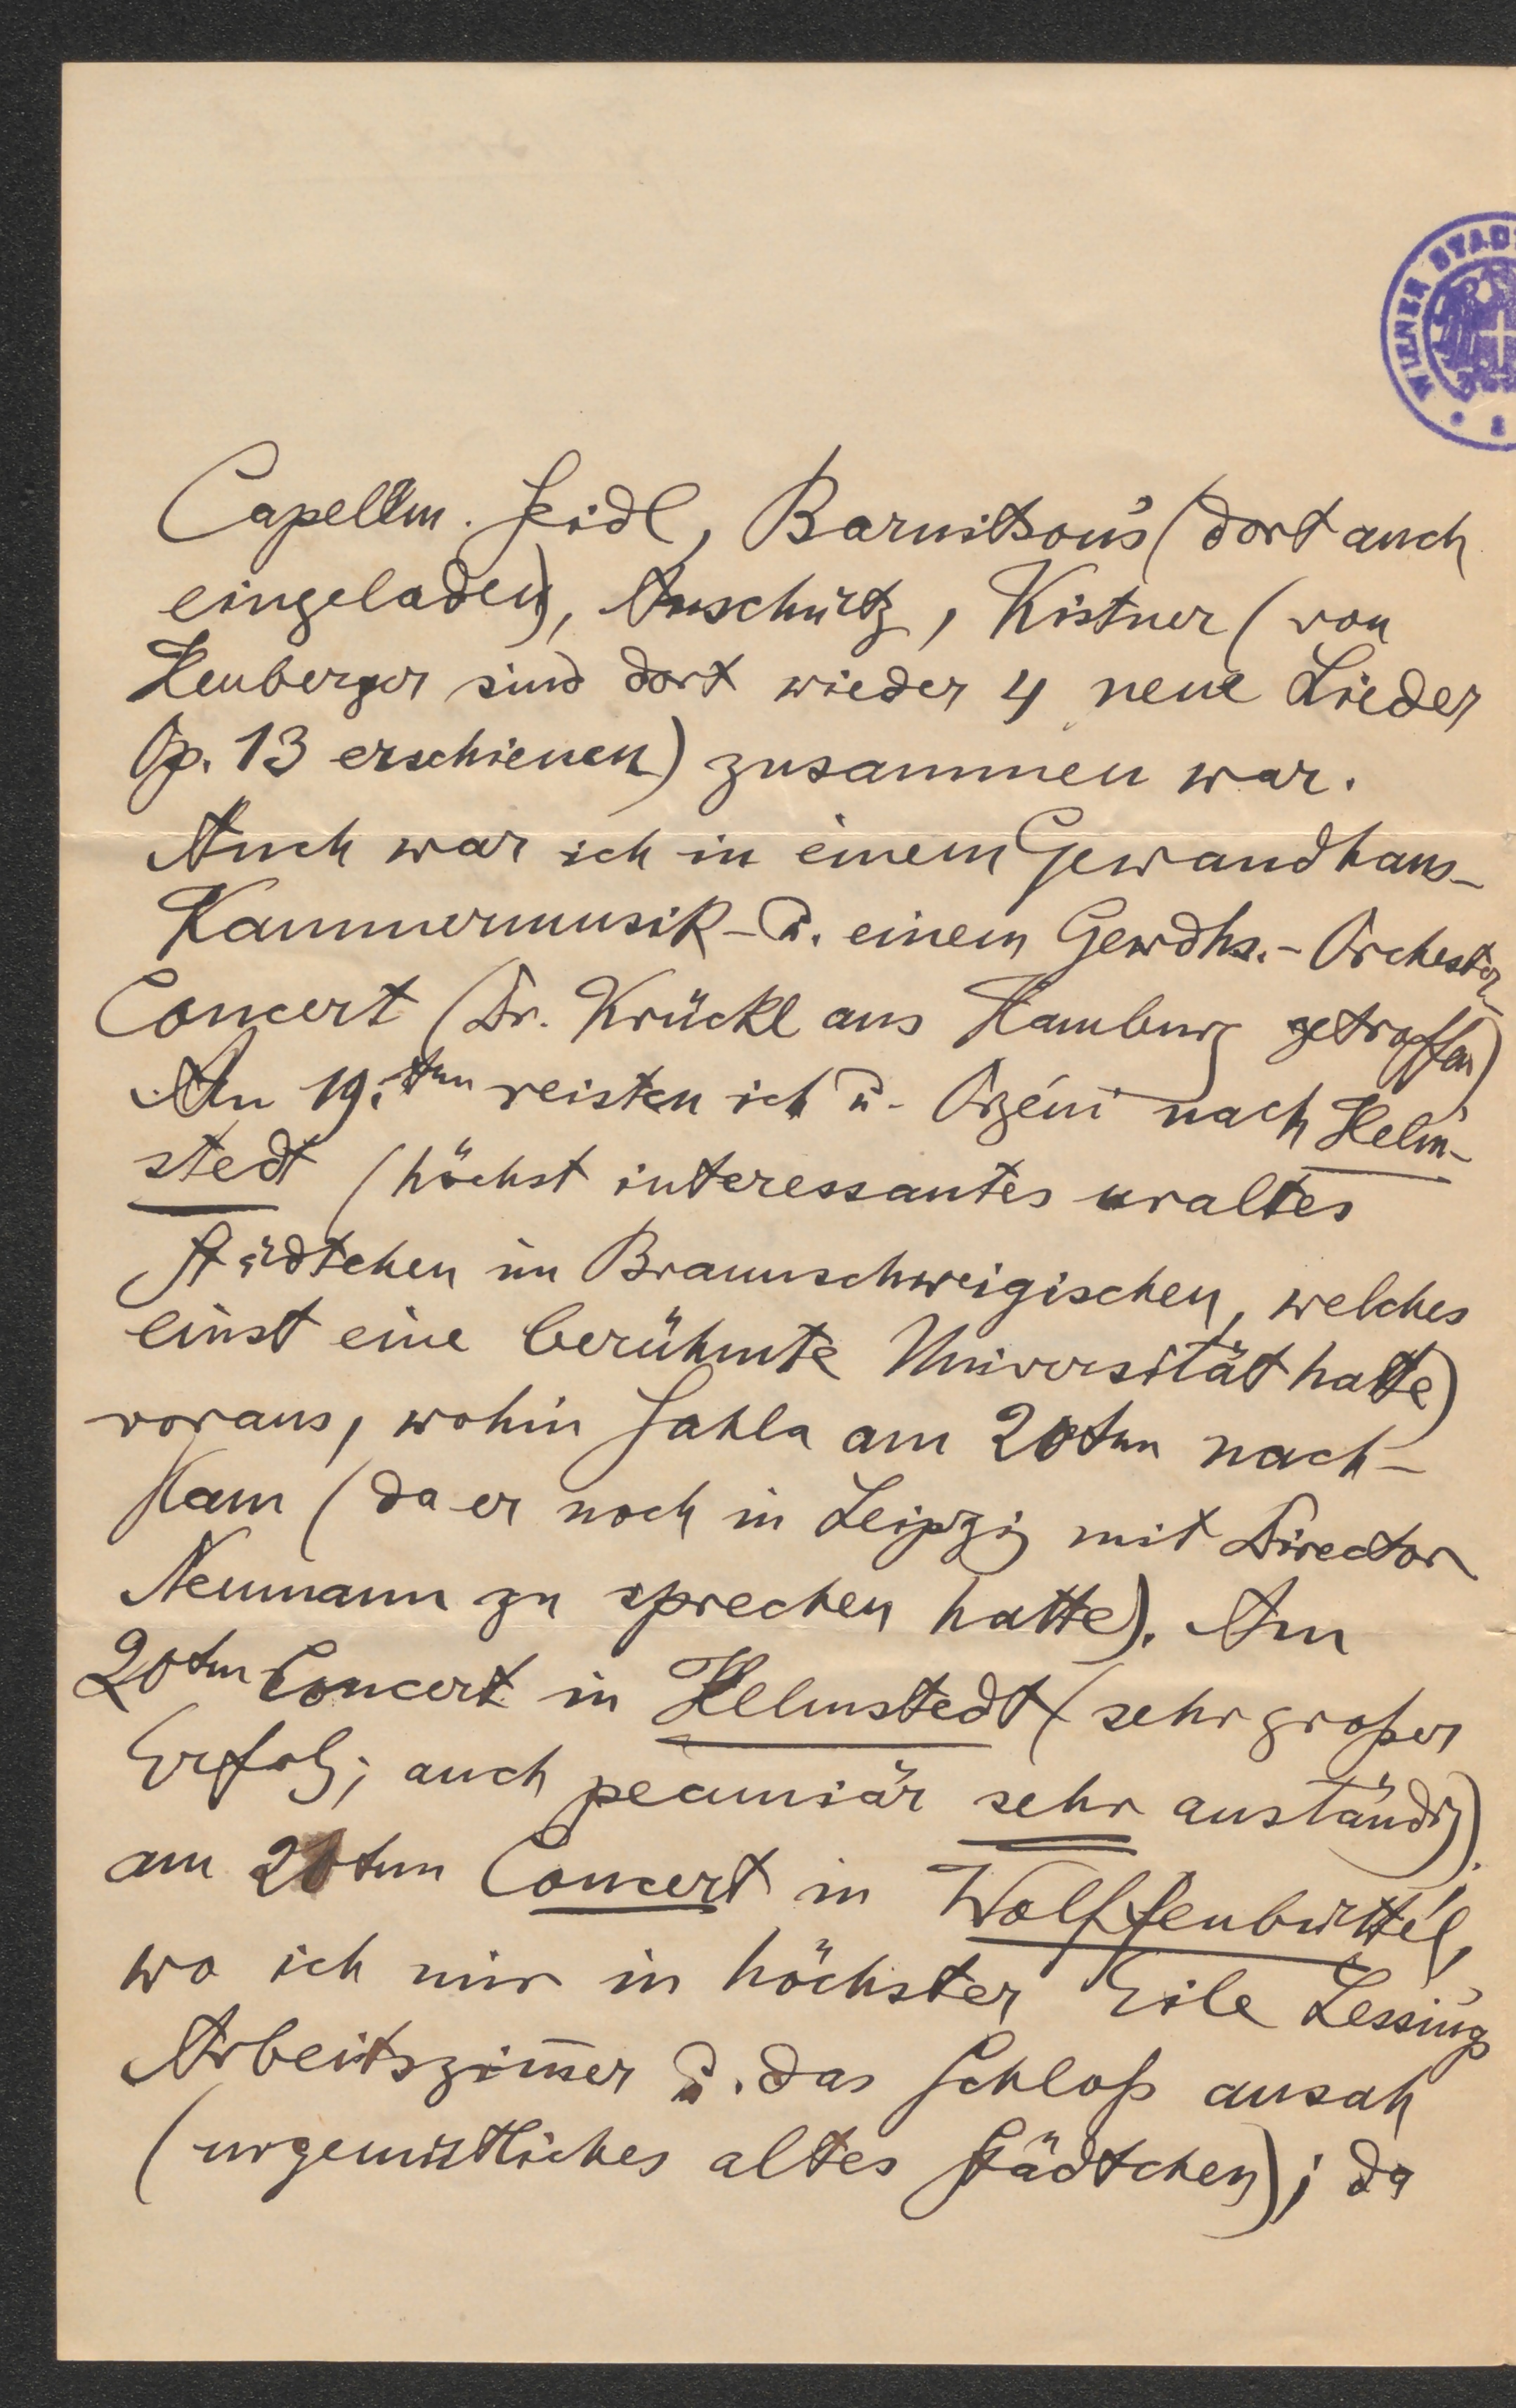 WIENER STAD
Capellm. Seidl, Barnitson's (dort auch
eingeladen), Anschütz, Kistner (von
Heuberger sind dort wieder 4 neue Lieder
Op. 13 erschienen) zusammen war.
Auch war ich in einem Gewandhaus-
Kammermusik- u. einem Gewdhs.- Orchester
Concert (Dr. Krückl aus Hamburg getroffen)
Am 19.ten reisten ich u. Orgéni nach Helm-
stedt (höchst interessantes uraltes
Städtchen im Braunschweigischen, welches
einst eine berühmte Universität hatte)
voraus, wohin Sahla am 20ten nach-
kam (da er noch in Leipzig mit Director
Neumann zu sprechen hatte). Am
20ten Concert in Helmstedt (sehr großer
Erfolg; auch pecuniär sehr anständig).
am 21ten Concert in Wolffenbüttel,
wo ich mir in höchster Eile Lessings
Arbeitszim̄er u. das Schloß ansah
(urgemütliches altes Städtchen); da